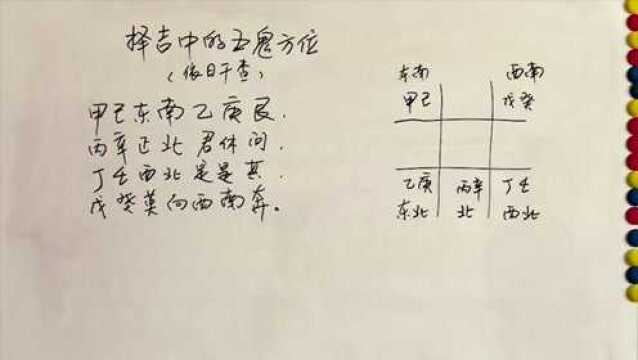 择吉中的五鬼方位
（依日干查）
甲己东南乙庚艮.
丙辛正北君休问.
丁壬西北是其.
戊癸莫向西南奔。
东南 西南
甲己 戊癸
乙庚 丙辛 丁壬
东北 北 西北